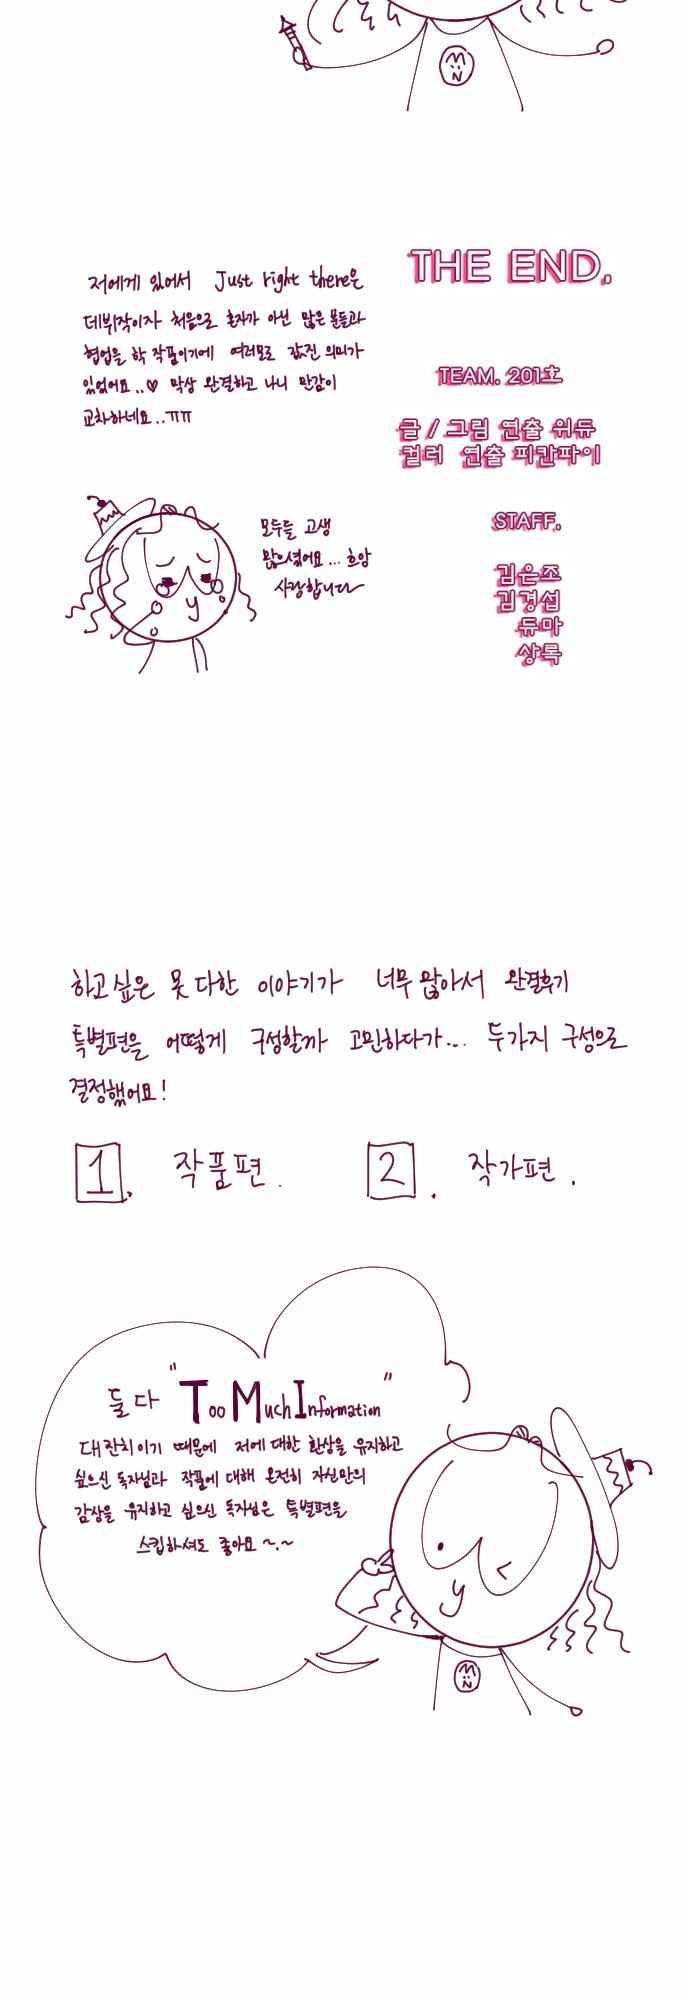 저에게 있어서 Just right there은
데뷔작이자 처음으로 혼자가 아닌 많은 분들과
협업을 한 작품이기에 여러모로 값진 의미가
있었어요..♡ 막상 완결하고 나니 만감이
교차하네요..ㅠㅠ
모두들 고생
많으셨어요... 흐앙
사랑합니다
THE END.
TEAM. 201호
글 / 그림 연출 위듀
컬러 연출 피칸파이
STAFF.
김은조
김경섭
듀마
상록
하고 싶은 못 다한 이야기가 너무 많아서 완결후기
특별편을 어떻게 구성할까 고민하다가... 두가지 구성으로
결정했어요!
1. 작품편. 2. 작가편.
둘 다 "Too Much Information"
대잔치이기 때문에 저에 대한 환상을 유지하고
싶으신 독자님과 작품에 대해 온전히 자신만의
감상을 유지하고 싶으신 독자님은 특별편을
스킵하셔도 좋아요 ~.~